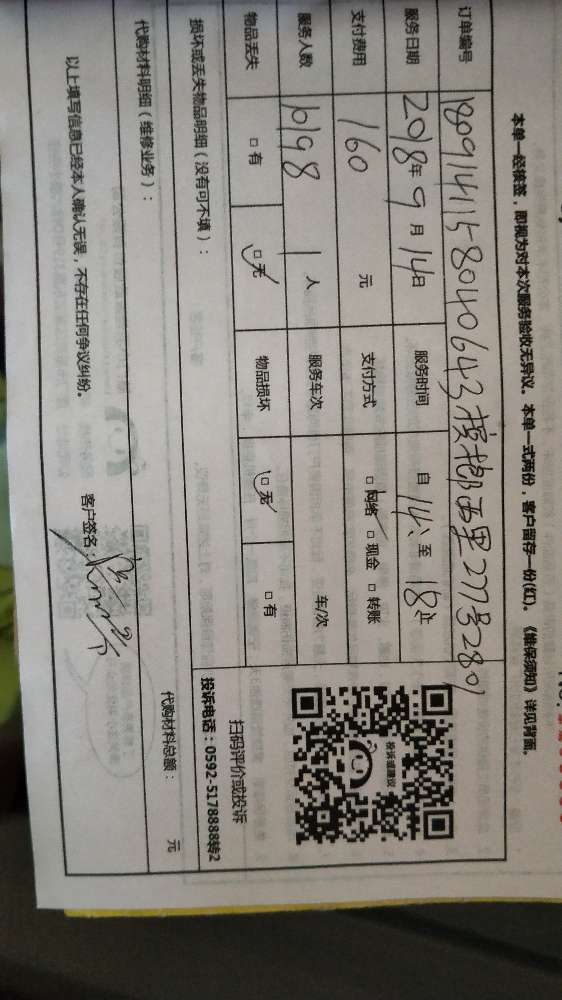 本单一经核签，即视为对本次服务验收无异议。本单一式两份，客户留存一份(红)。《维保须知》详见背面。
订单编号 1809141158040643 槟榔西里277号2801
服务日期 2018年 9 月 14日 服务时间 自 14: 至 18止
支付费用 160 元 支付方式 □网络 □现金 □转账
服务人数 10198 1 人 服务车次 车/次
物品丢失 □有 □无 物品损坏 □无 □有
投诉或建议
扫码评价或投诉
投诉电话：0592-5178888转2
损坏或丢失物品明细（没有可不填）：
代购材料明细（维修业务）： 代购材料总额： 元
以上填写信息已经本人确认无误，不存在任何争议纠纷。 客户签名：